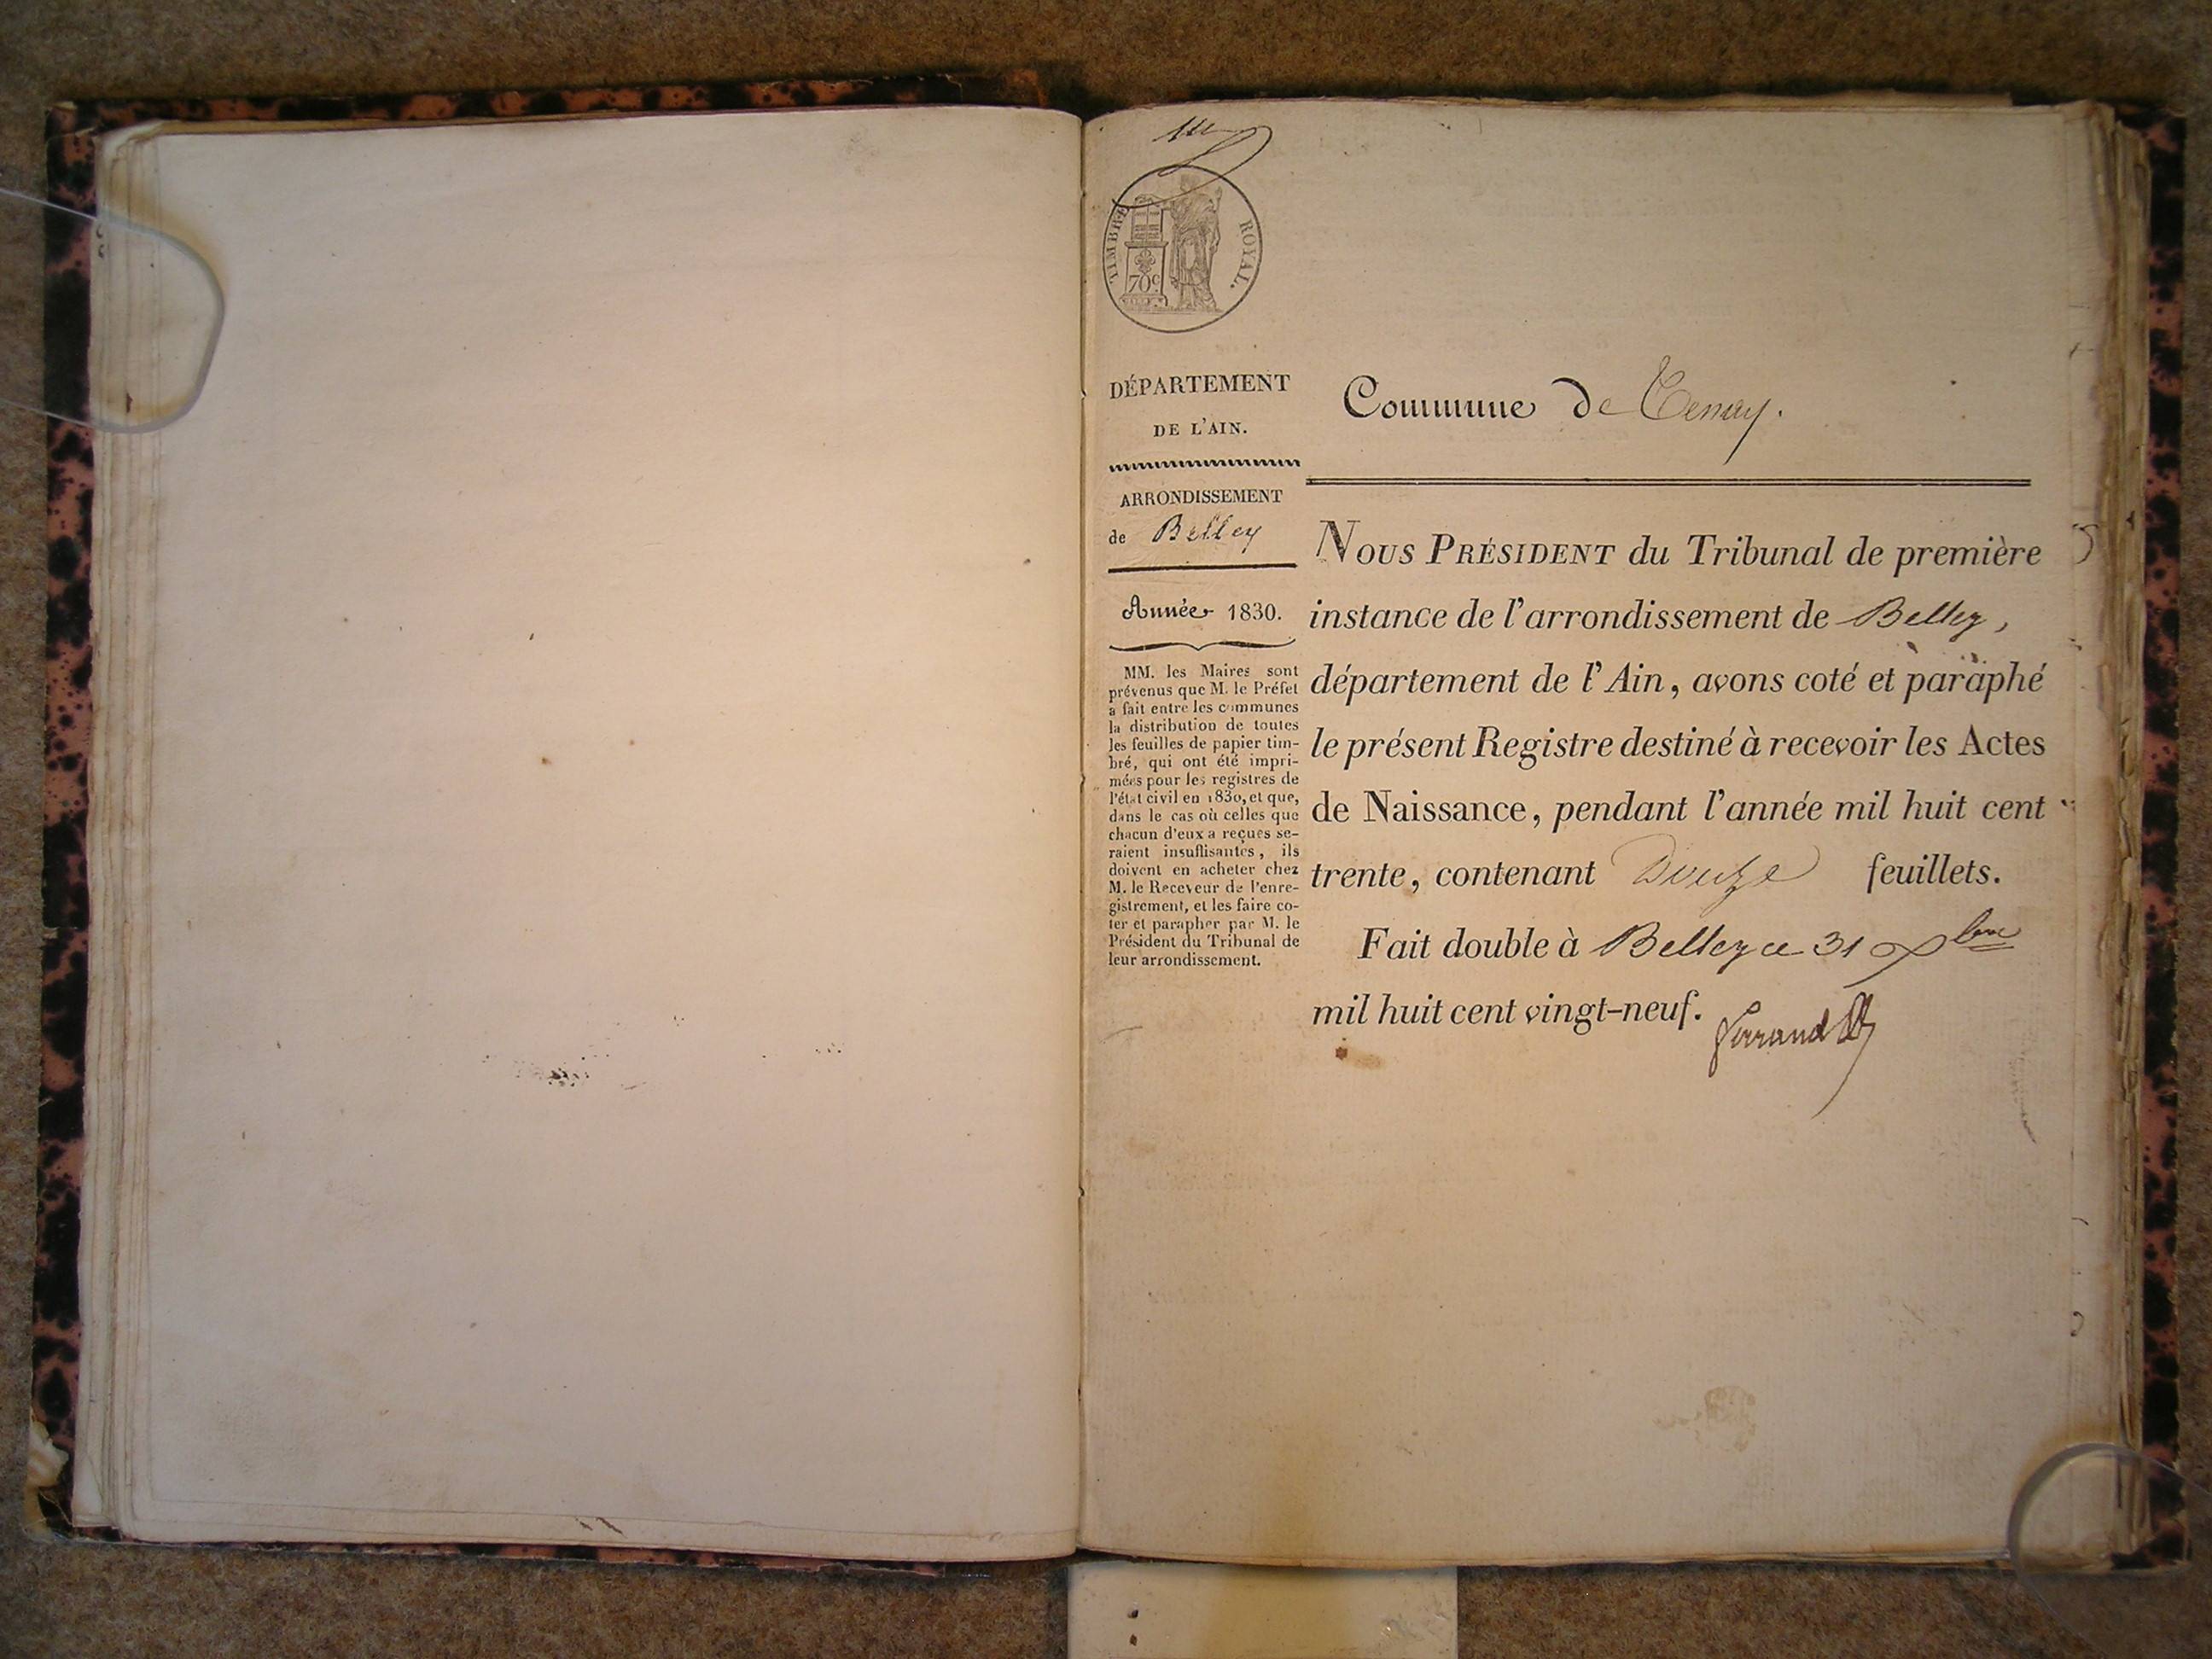 TIMBRE ROYAL.
70c
DÉPARTEMENT
DE L'AIN.
ARRONDISSEMENT
de Belley
Année 1830.
MM. les Maires sont
prévenus que M. le Préfet
a fait entre les communes
la distribution de toutes
les feuilles de papier tim-
bré, qui ont été impri-
mées pour les registres de
l'état civil en 1830, et que,
dans le cas où celles que
chacun d'eux a reçues se-
raient insuffisantes, ils
doivent en acheter chez
M. le Receveur de l'enre-
gistrement, et les faire co-
ter et parapher par M. le
Président du Tribunal de
leur arrondissement.
Commune de Tenay.
NOUS PRÉSIDENT du Tribunal de première
instance de l'arrondissement de Belley,
département de l'Ain, avons coté et paraphé
le présent Registre destiné à recevoir les Actes
de Naissance, pendant l'année mil huit cent
trente, contenant Douze feuillets.
Fait double à Belley ce 31 Xbre
mil huit cent vingt-neuf.